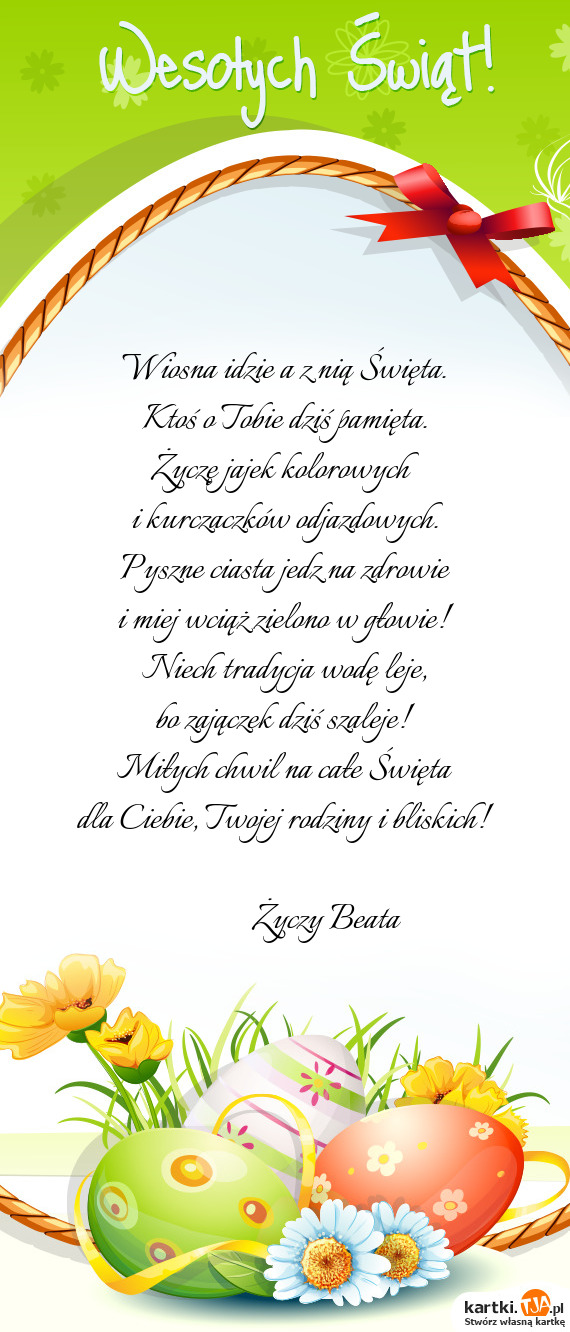 Wesołych Świąt!
Wiosna idzie a z nią Święta.
Ktoś o Tobie dziś pamięta.
Życzę jajek kolorowych
i kurczaczków odjazdowych.
Pyszne ciasta jedz na zdrowie
i miej wciąż zielono w głowie!
Niech tradycja wodę leje,
bo zajączek dziś szaleje!
Miłych chwil na całe Święta
dla Ciebie, Twojej rodziny i bliskich!
Życzy Beata
kartki.TJA.pl
Stwórz własną kartkę